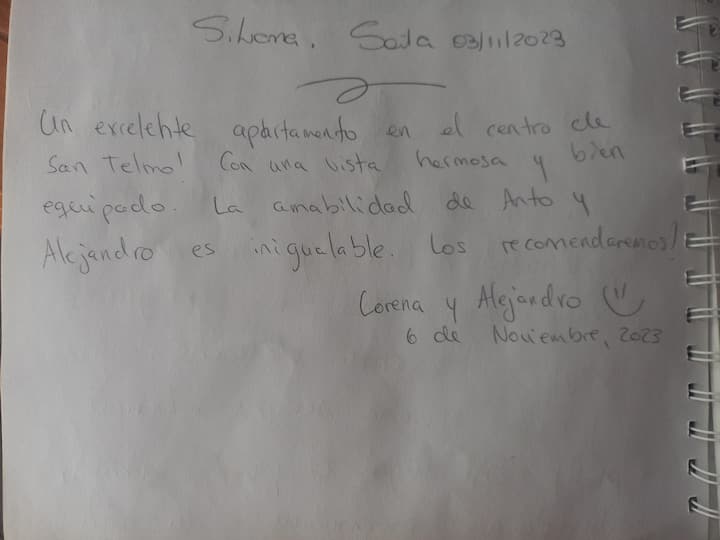 Silvana. Saita 03/11/2023
Un excelente apartamento en el centro de
San Telmo! Con una vista hermosa y bien
equipado. La amabilidad de Anto y
Alejandro es inigualable. Los recomendaremos!
Lorena y Alejandro
6 de Noviembre, 2023